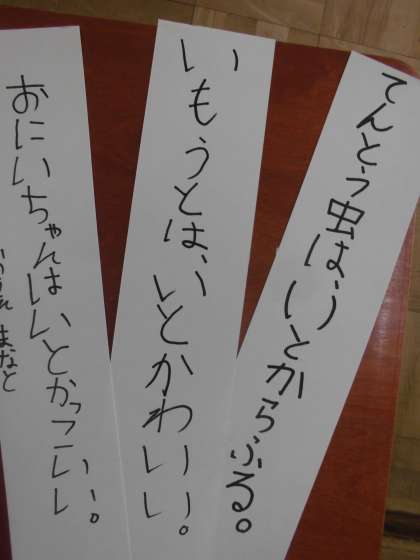 てんとう虫は、いとからふる。
いもうとは、いとかわいい。
おにいちゃんはいとかっこいい。
まなと